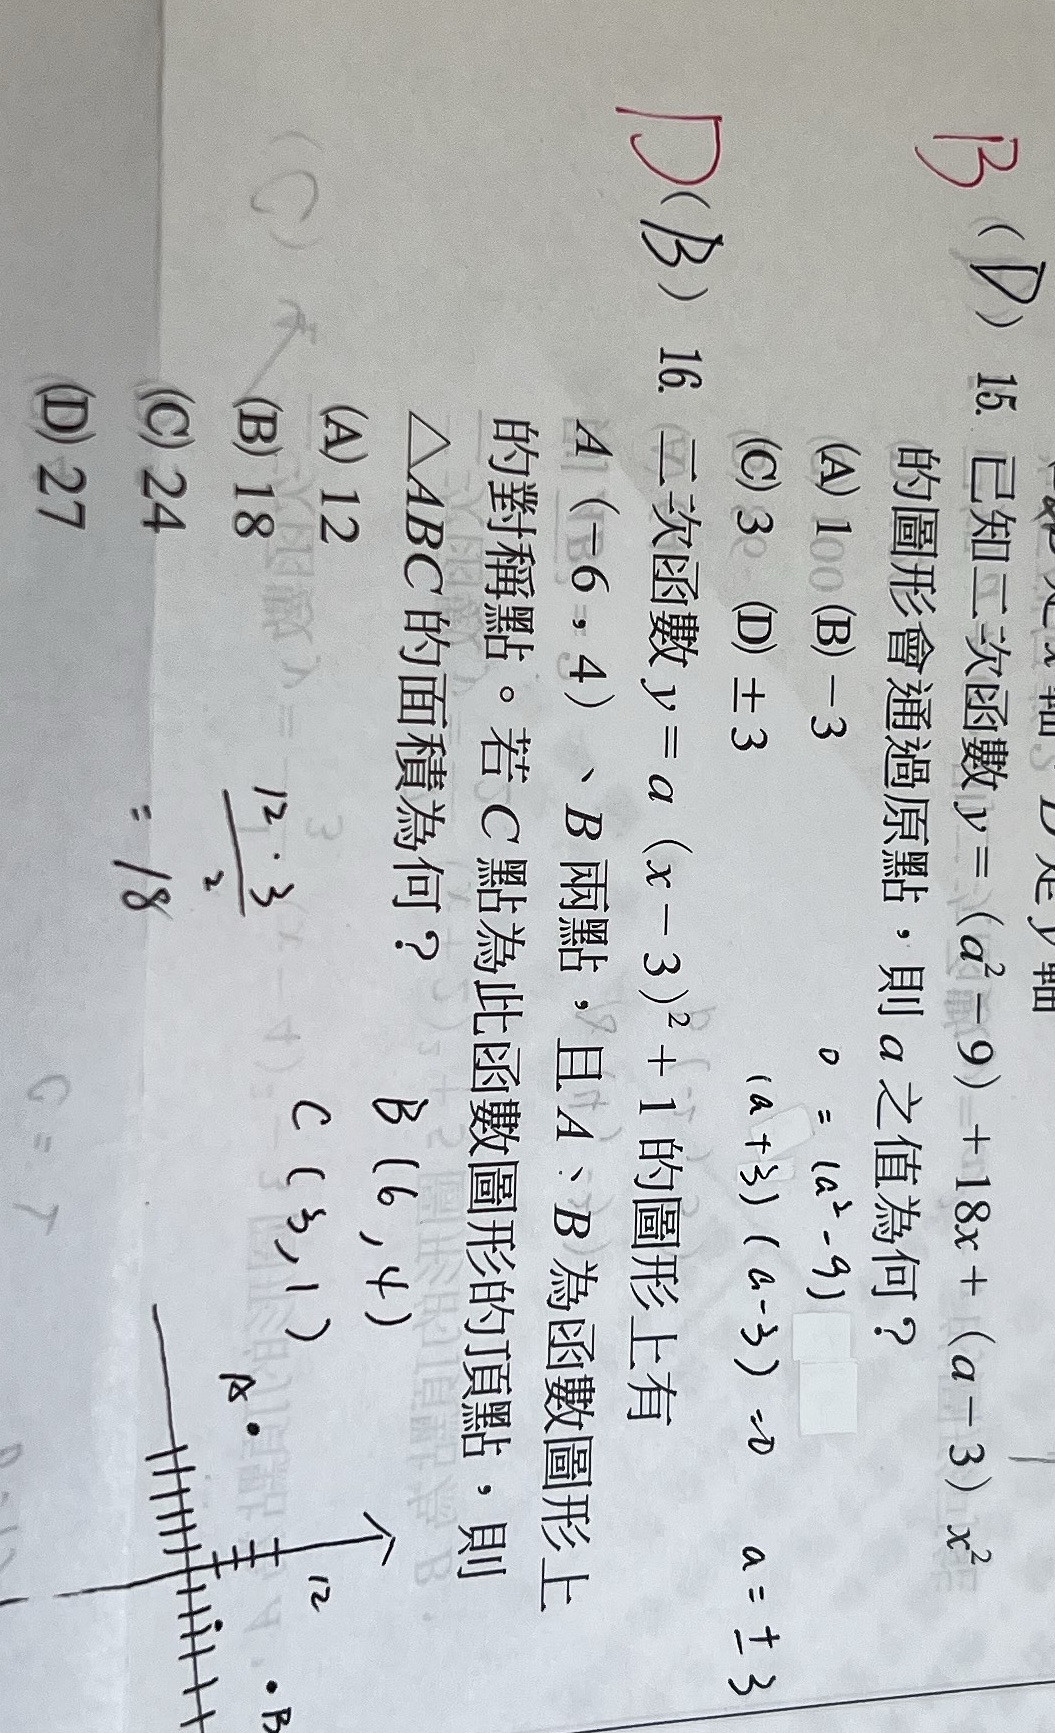 B (D) 15. 已知二次函數y=(a²-9)+18x+(a-3)x²
的圖形會通過原點,則a之值為何?
(A) 1 (B) -3
(C) 3 (D) ±3
0 = (a²-9)
(a+3)(a-3)=0 a=±3
D (B) 16. 二次函數y=a(x-3)²+1的圖形上有
A(-6,4)、B兩點,且A、B為函數圖形上
的對稱點。若C點為此函數圖形的頂點,則
△ABC的面積為何?
(A) 12
(B) 18
(C) 24
(D) 27
B(6,4)
C(3,1)
12·3
2
=18
A
12
B